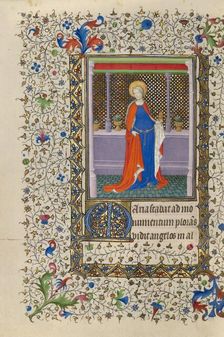 Maria stabat ad mo
numentum plorās
vidit angelos in al